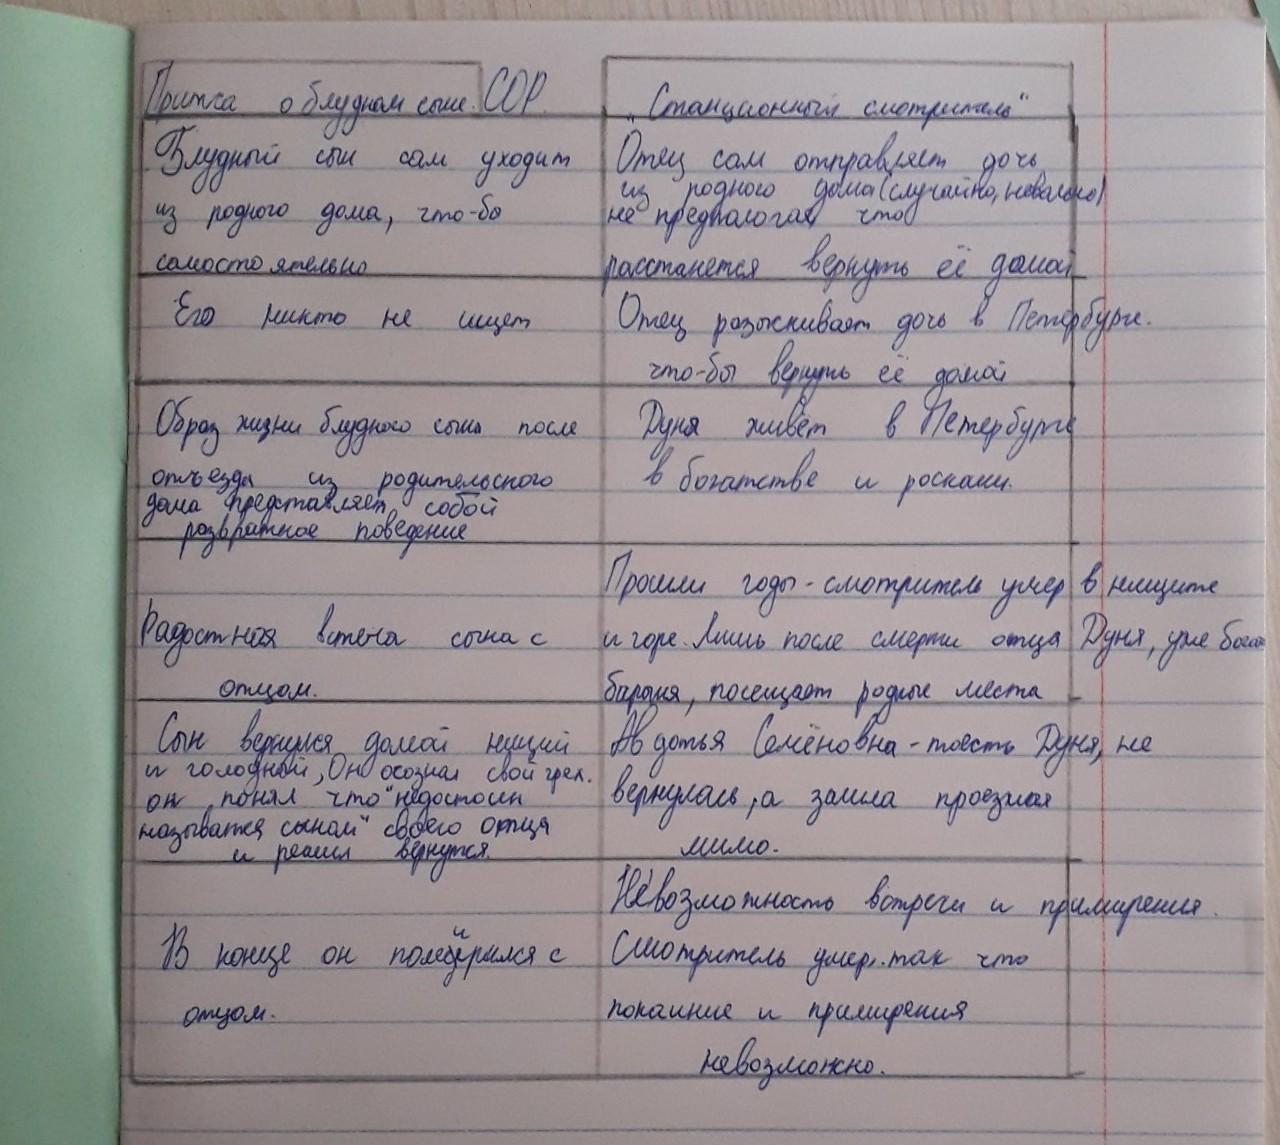 Притча о блудном сыне. СОР.
Блудный сын сам уходит
из родного дома, что-бы
самостоятельно
Его никто не ищет
Образ жизни блудного сына после
отъезда из родительского
дома представляет собой
развратное поведение
Радостная встеча сына с
отцом.
Сын вернулся домой нищий
и голодный, Он осознал свой грех.
он понял что "недостоин
называтся сыном" своего отца
и решил вернутся.
В конце он помирился с
отцом.
"Станционный смотритель"
Отец сам отправляет дочь
из родного дома (случайно, невольно)
не предпологая что
расстанется вернуть её домой
Отец разыскивает дочь в Петербурге.
что-бы вернуть её домой
Дуня живёт в Петербурге
в богатстве и роскоши.
Прошли годы - смотритель умер в нищите
и горе. Лишь после смерти отца Дуня, уже
барыня, посещает родные места
Авдотья Семёновна - тоесть Дуня, не
вернулась, а зашла проезжая
мимо.
Невозможность встречи и примирения.
Смотритель умер. так что
покаиние и примирения
невозможно.